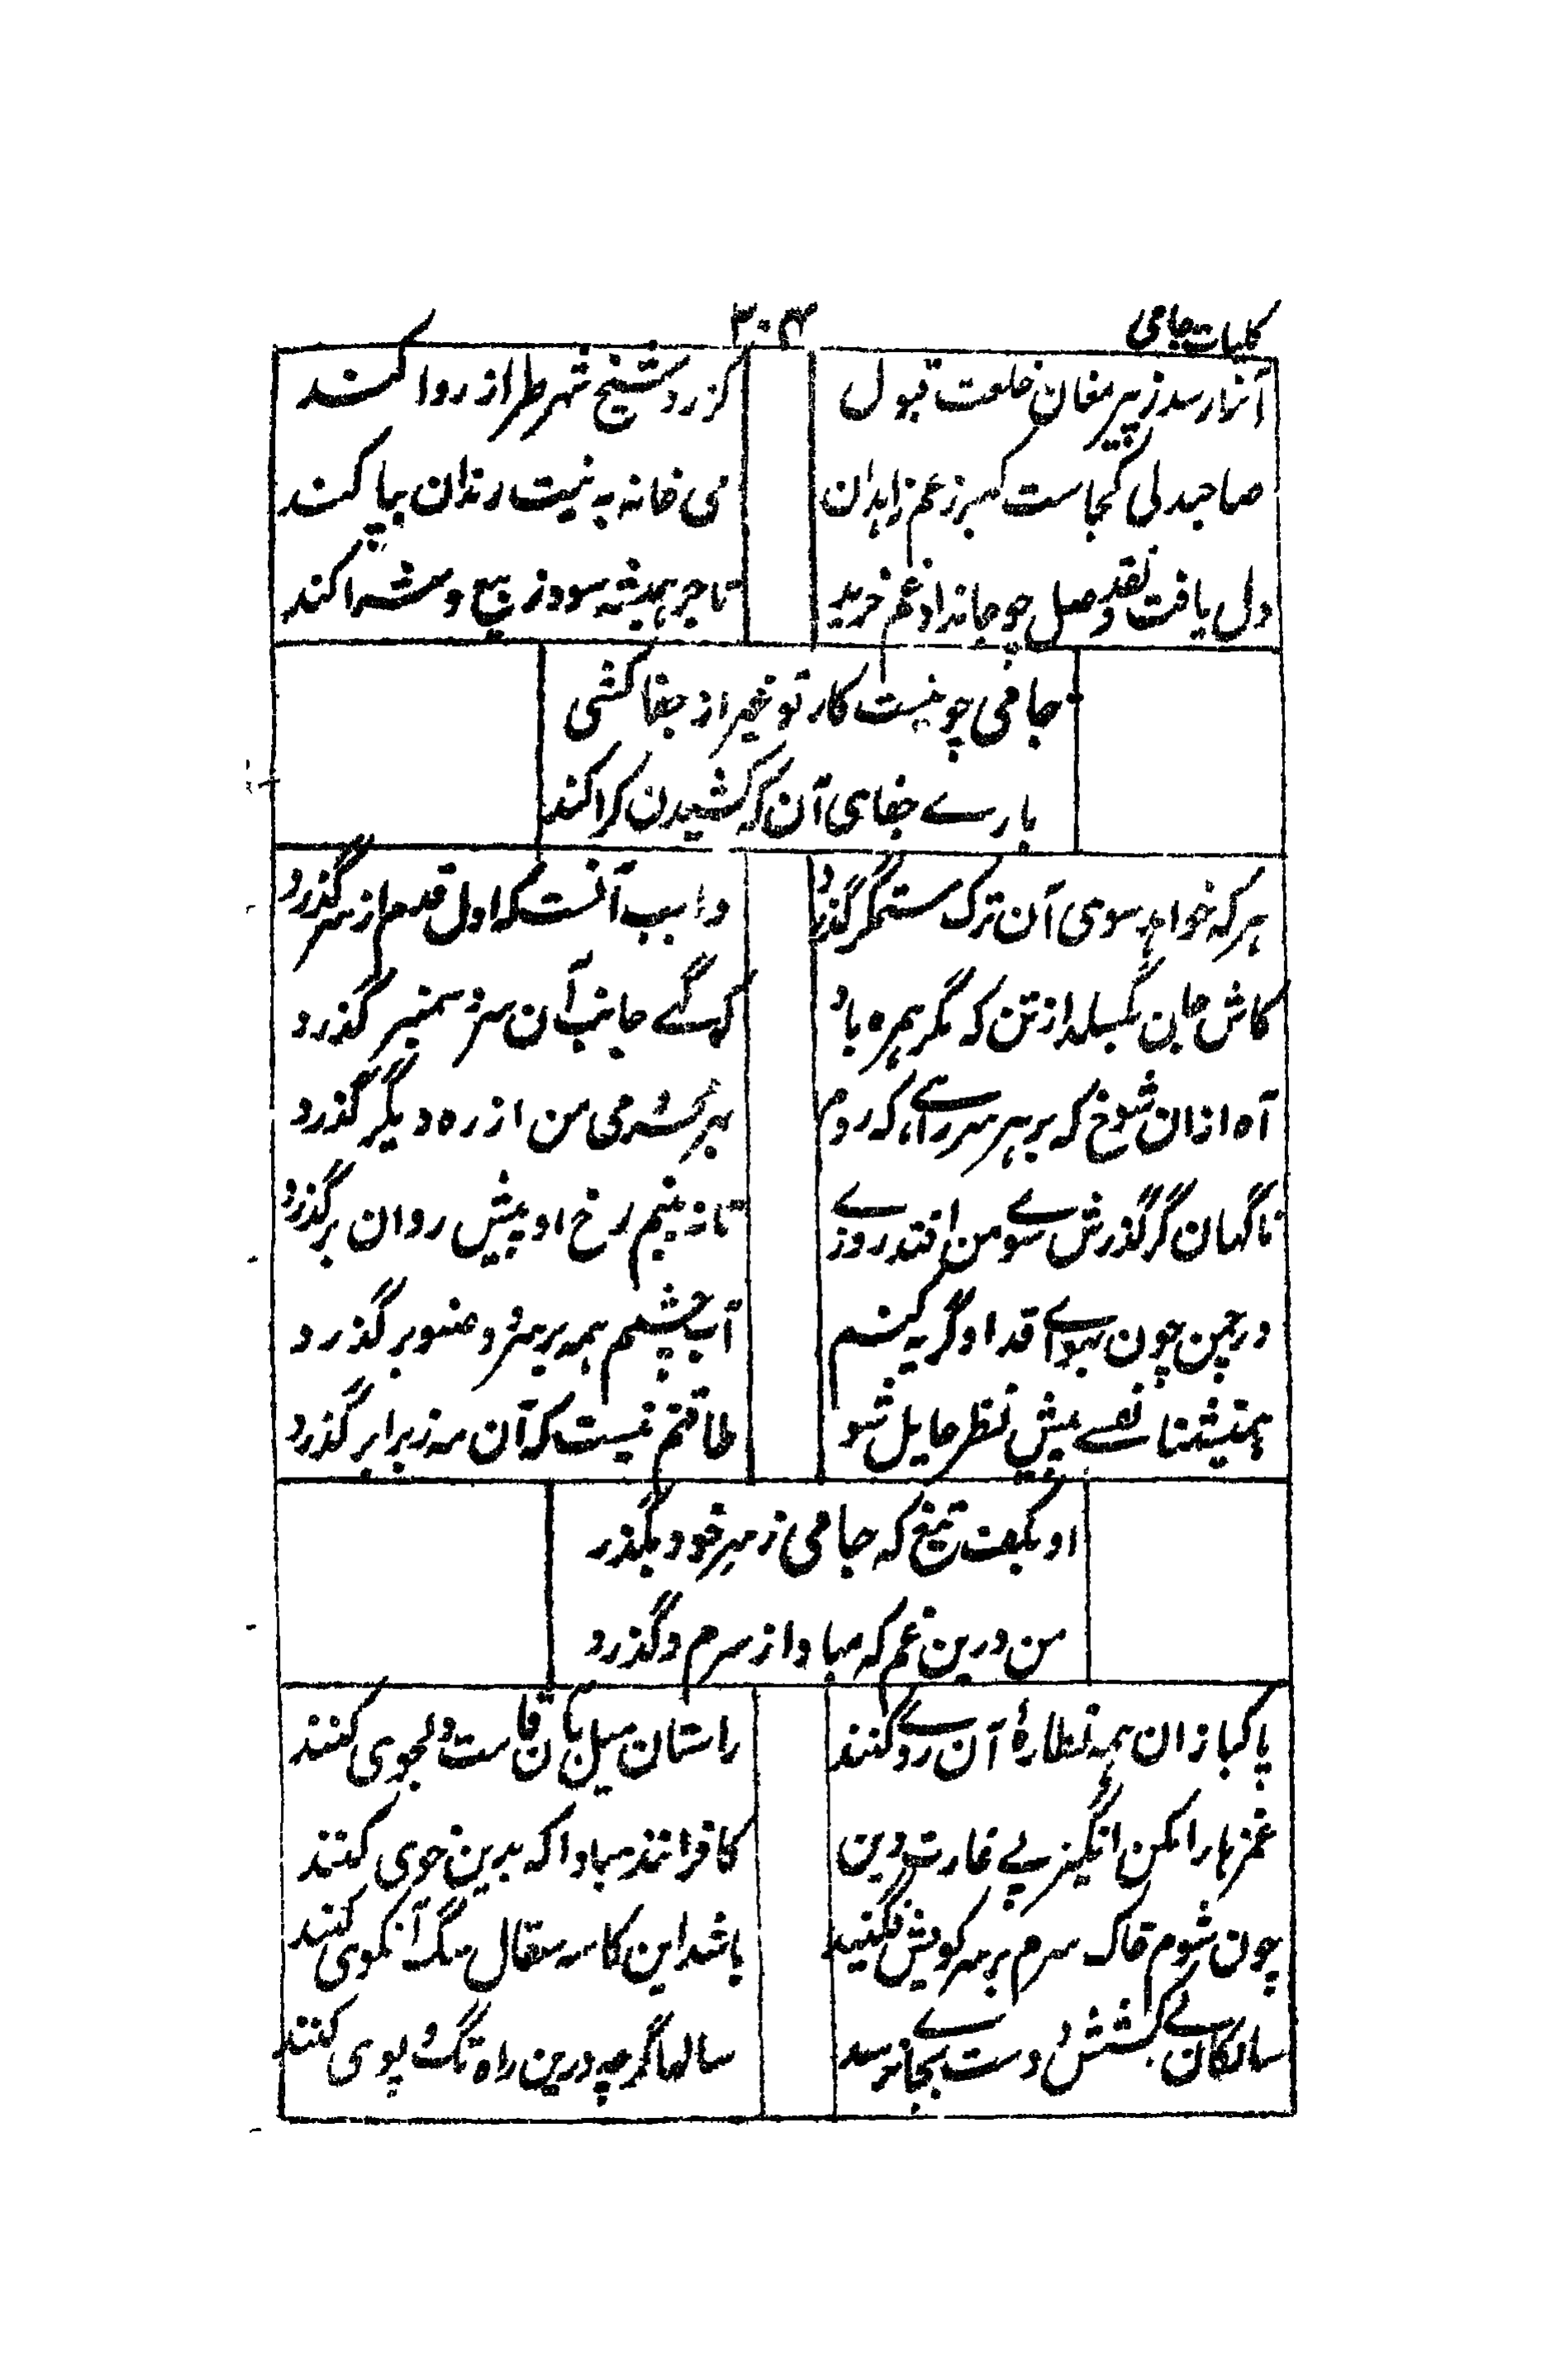 کلیات جامی
۳۰۴
آنرا رسد ز پیر مغان خلعت قبول
کز رد شیخ شهر طراز ردا کند
صاحبدلی کجاست که بر زعم زاهدان
می خانه به نیت رندان بپا کند
دل یافت نقد وصل چو جانداد غم خرید
تاجر همیشه سود ز بیع و شرا کند
جامی چو نیست کار تو غیر از جفا کشی
بارے جفای آن که کشیدن کرا کند
هر که خواهد سوی آن ترک ستمگر گذرد
واجب آنست که اول قدم از سر گذرد
کاش جان بگسلد از تن که مگر همره باد
که گے جانب آن سرو سمنبر گذرد
آه ازان شوخ که بر هر سر راہے که روم
بهر محرومی من از ره دیگر گذرد
ناگهان گر گذرش سوے من افتد روزے
تا نه بینم رخ او پیش روان بر گذرد
در چمن چون بهواے قد او گریه کنم
آب چشمم همه بر سرو و صنوبر گذرد
همنشینا نفسے پیش نظر حایل شو
طاقتم نیست که آن مه ز برابر گذرد
او بکف تیغ که جامی ز سر خود بگذر
من درین غم که مبادا ز سرم و گذرد
پاکبازان همه نظارهٔ آن روے کنند
راستان میل بآن قامت دلجوی کنند
غمزهارا مکن انگیز پے غارت دین
کافرانند مبادا که بدین خوی کنند
چون شوم خاک سرم بر سر کویش فگنید
باشد این کاسه سفال سگ آنکوی کنند
سالکان بے کششش دوست بجاے نرسد
سالها گرچه درین راه تگ و پوی کنند